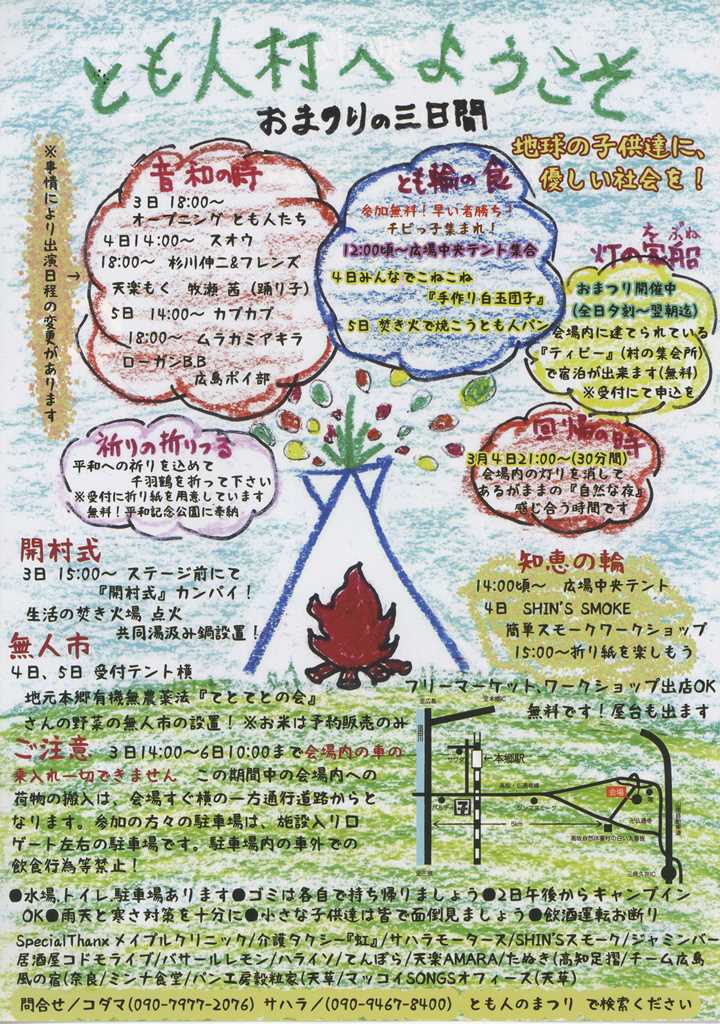 とも人村へようこそ
おまつりの三日間
地球の子供達に、
優しい社会を！
※事情により出演日程の変更があります
→
音和の時
3日 18:00～
オープニング とも人たち
4日14:00～ スオウ
18:00～ 杉川伸二&フレンズ
天楽もく 牧瀬 茜(踊り子)
5日 14:00～ カブカブ
18:00～ ムラカミアキラ
ローガンB.B
広島ポイ部
とも輪の食
参加無料！早い者勝ち！
チビっ子集まれ！
12:00頃～広場中央テント集合
4日みんなでこねこね
『手作り白玉団子』
5日 焚き火で焼こうとも人パン
灯の家船
えぶね
おまつり開催中
(全日夕刻～翌朝迄)
会場内に建てられている
『ティピー』(村の集会所)
で宿泊が出来ます(無料)
※受付にて申込を
祈りの折りつる
平和への祈りを込めて
千羽鶴を折って下さい
※受付に折り紙を用意しています
無料！平和記念公園に奉納
回帰の時
3月4日21:00～(30分間)
会場内の灯りを消して
あるがままの『自然な夜』
感じ合う時間です
開村式
3日 15:00～ ステージ前にて
『開村式』カンパイ！
生活の焚き火場 点火
共同湯汲み鍋設置！
知恵の輪
14:00頃～ 広場中央テント
4日 SHIN'S SMOKE
簡単スモークワークショップ
15:00～折り紙を楽しもう
無人市
4日、5日 受付テント横
地元本郷有機無農薬法『てとてとの会』
さんの野菜の無人市の設置！※お米は予約販売のみ
フリーマーケット、ワークショップ出店OK
無料です！屋台も出ます
ご注意 3日14:00～6日10:00まで会場内の車の
乗入れ一切できません この期間中の会場内への
荷物の搬入は、会場すぐ横の一方通行道路からと
なります。参加の方々の駐車場は、施設入リ口
ゲート左右の駐車場です。駐車場内の車外での
飲食行為等禁止！
←本郷駅
会場
5km
●水場、トイレ、駐車場あります●ゴミは各自で持ち帰りましょう●2日午後からキャンプイン
OK●雨天と寒さ対策を十分に●小さな子供達は皆で面倒見ましょう●飲酒運転お断り
SpecialThanx メイプルクリニック/介護タクシー『虹』/サハラモータース/SHIN'Sスモーク/ジャミンバー
居酒屋コドモライブ/バサールレモン/ハライソ/てんぽら/天楽AMARA/たぬき(高知足摺/チーム広島
風の宿(奈良/ミンナ食堂/パン工房穀粒家(天草/マッコイSONGSオフィース(天草)
問合せ／コダマ(090-7977-2076) サハラ／(090-9467-8400) とも人のまつり で検索ください